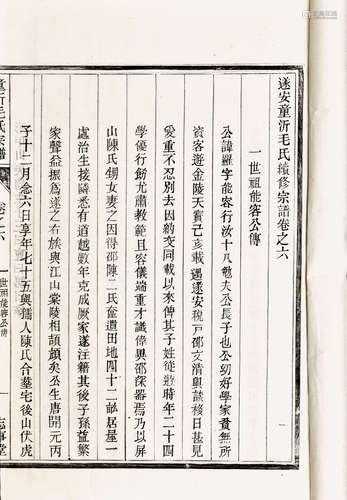 遂安童沂毛氏續修宗譜卷之六
一世祖能客公傳
公諱羅字能客行汝十八勉夫公長子也公幼好學家貧無所
資客遊金陵天寶己亥載遇遂安稅戶邵文清與談移日甚見
愛重不忍別去因約交同載以來俾其子姓從遊時年二十四
學優行飭尤肅教範且容儀端重才識偉異邵深器焉乃以屏
山陳氏甥女妻之因得邵陳二氏奩遺田地四十二畝居屋一
處治生接隣悉有道越數年克成厥家遂注籍其後子孫益繁
家聲益振為遂之右族與江山棠陵相頡頏矣公生唐開元丙
子十二月念六日享年七十五與孺人陳氏合墓宅後山伏虎
童沂毛氏宗譜
卷之六
一世祖能客公傳